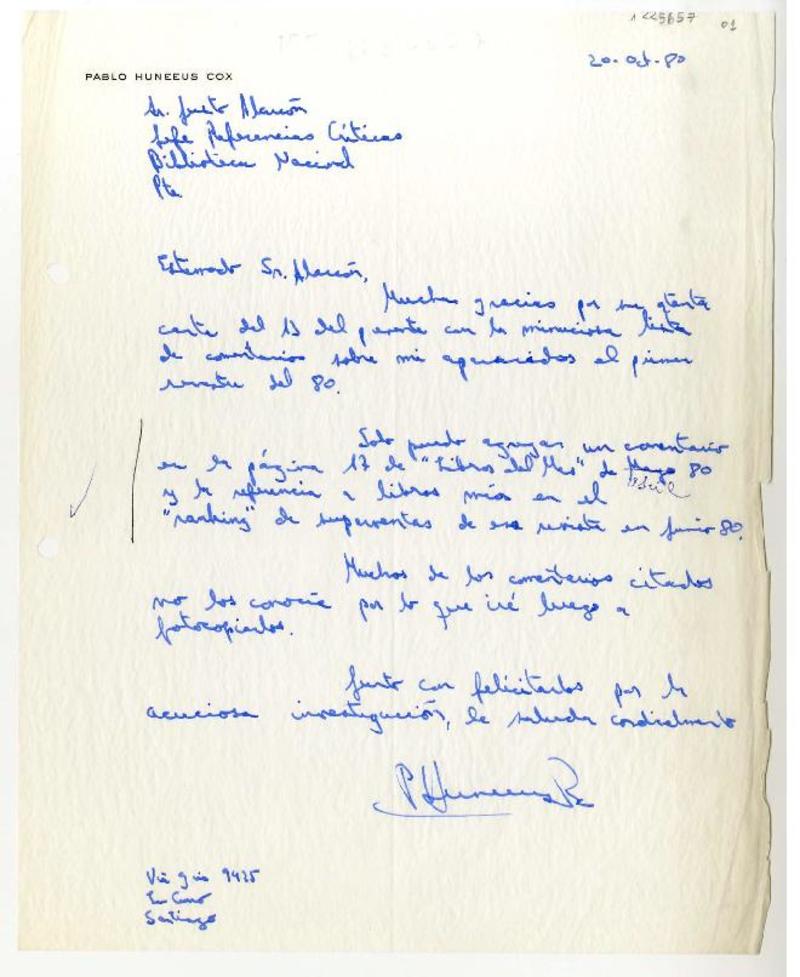 225657 01
20-Oct-80
PABLO HUNEEUS COX
Sr. Justo Alarcón
Jefe Referencias Críticas
Biblioteca Nacional
Pte
Estimado Sr. Alarcón,
Muchas gracias por su atenta
carta del 13 del presente con la minuciosa lista
de comentarios sobre mí aparecidos el primer
semestre del 80.
Solo puedo agregar un comentario
en la página 17 de "Libros del Mes" de Mayo 80
Abril
y la referencia a libros míos en el
"ranking" de superventas de esa revista en Junio 80.
Muchos de los comentarios citados
no los conocía por lo que iré luego a
fotocopiarlos.
Junto con felicitarlos por la
acuciosa investigación, le saluda cordialmente
P Huneeus
9425
Santiago